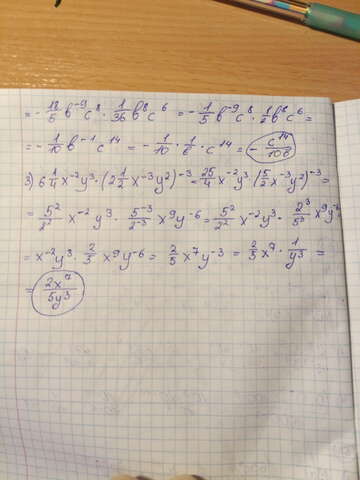 = - 18/5 b⁻⁹ c⁸ · 1/36 b⁸ c⁶ = - 1/5 b⁻⁹ c⁸ · 1/2 b⁸ c⁶ =
= - 1/10 b⁻¹ c¹⁴ = - 1/10 · 1/b · c¹⁴ = - c¹⁴/10b
3) 6 1/4 x⁻² y³ · (2 1/2 x⁻³ y²)⁻³ = 25/4 x⁻² y³ · (5/2 x⁻³ y²)⁻³ =
= 5²/2² x⁻² y³ · 5⁻³/2⁻³ x⁹ y⁻⁶ = 5²/2² x⁻² y³ · 2³/5³ x⁹ y⁻⁶
= x⁻² y³ · 2/5 x⁹ y⁻⁶ = 2/5 x⁷ y⁻³ = 2/5 x⁷ · 1/y³ =
= 2x⁷/5y³